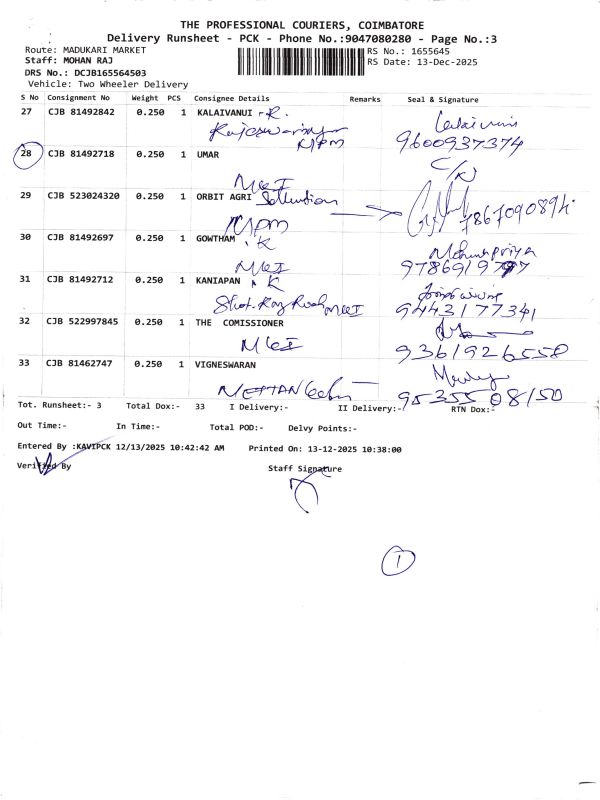 THE PROFESSIONAL COURIERS, COIMBATORE
Delivery Runsheet - PCK - Phone No.:9047080280 - Page No.:3
Route: MADUKARI MARKET RS No.: 1655645
Staff: MOHAN RAJ RS Date: 13-Dec-2025
DRS No.: DCJB165564503
Vehicle: Two Wheeler Delivery
S No Consignment No Weight PCS Consignee Details Remarks Seal & Signature
27 CJB 81492842 0.250 1 KALAIVANUI - R.
9600937374
28 CJB 81492718 0.250 1 UMAR
C/N
29 CJB 523024320 0.250 1 ORBIT AGRI
7867090894
30 CJB 81492697 0.250 1 GOWTHAM . K
Mohanapriya
31 CJB 81492712 0.250 1 KANIAPAN . K
9443177341
32 CJB 522997845 0.250 1 THE COMISSIONER
9361926558
33 CJB 81462747 0.250 1 VIGNESWARAN
9535508150
Tot. Runsheet:- 3 Total Dox:- 33 I Delivery:- II Delivery:- RTN Dox:-
Out Time:- In Time:- Total POD:- Delvy Points:-
Entered By :KAVIPCK 12/13/2025 10:42:42 AM Printed On: 13-12-2025 10:38:00
Verified By Staff Signature
1